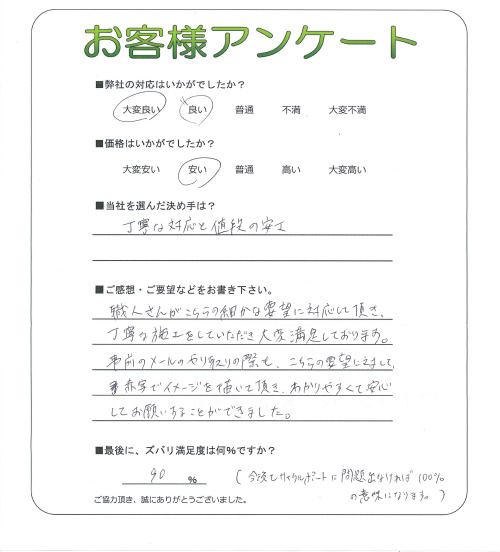 お客様アンケート
■弊社の対応はいかがでしたか？
大変良い 良い 普通 不満 大変不満
■価格はいかがでしたか？
大変安い 安い 普通 高い 大変高い
■当社を選んだ決め手は？
丁寧な対応と値段の安さ
■ご感想・ご要望などをお書き下さい。
職人さんがこちらの細かな要望に対応して頂き、
丁寧な施工をしていただき大変満足しております。
事前のメールのやり取りの際も、こちらの要望に対して、
赤字でイメージを描いて頂き、わかりやすくて安心
してお願いすることができました。
■最後に、ズバリ満足度は何%ですか？
90 %
(今後サイクルポートに問題出なければ100%
の意味になります。)
ご協力頂き、誠にありがとうございました。